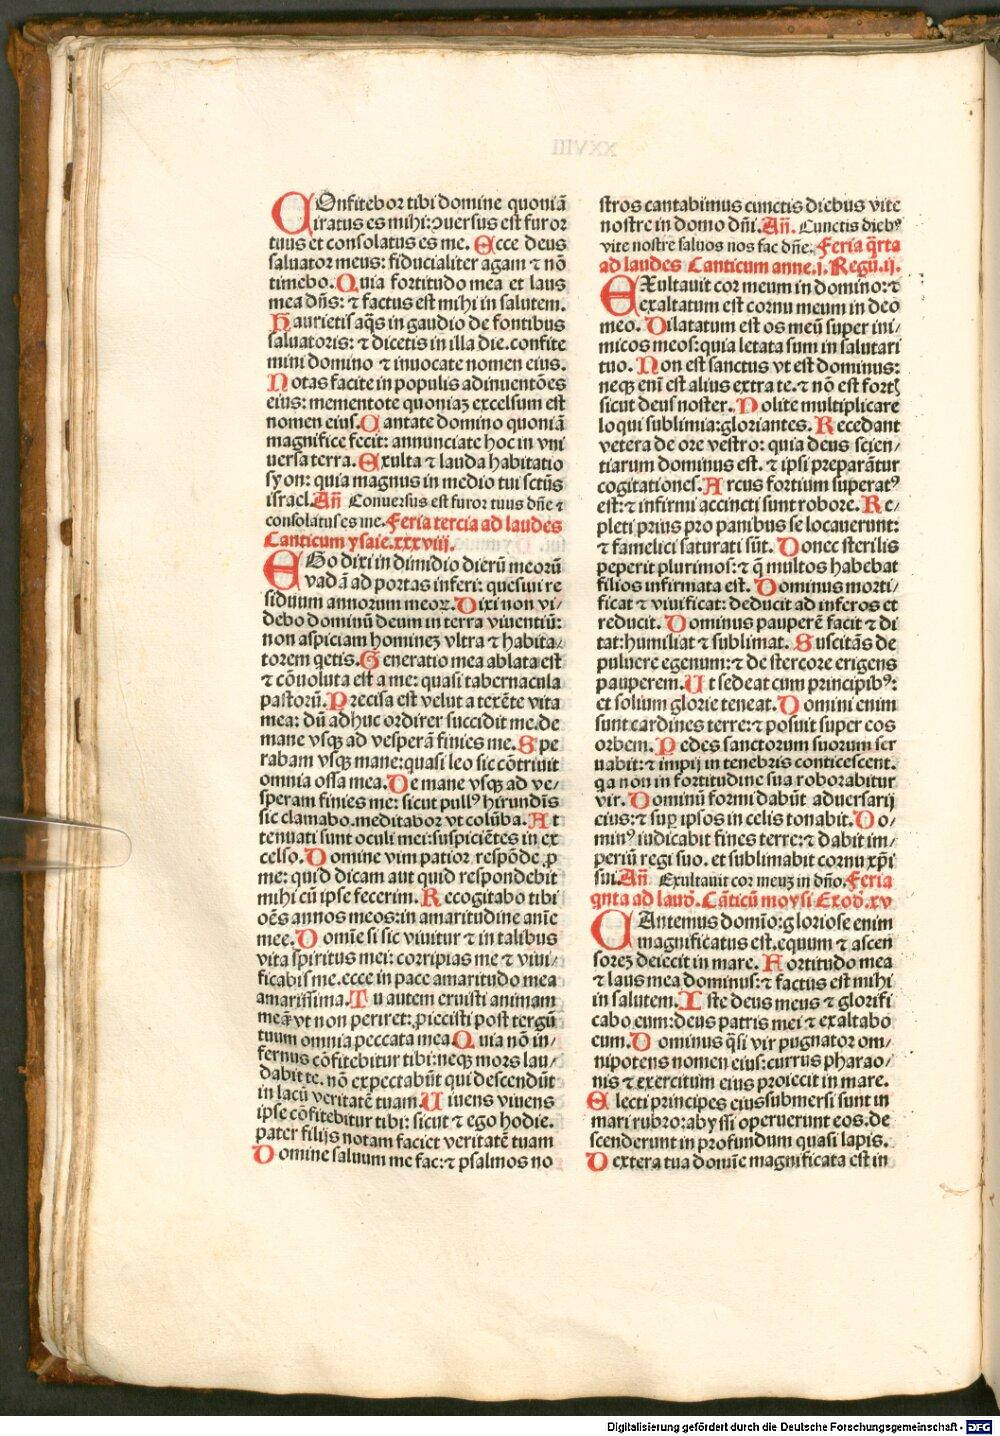 COnfitebor tibi domine quoniã
iratus es mihi:ꝯuersus est furor
tuus et consolatus es me. Ecce deus
saluator meus: fiducialiter agam ⁊ nõ
timebo. Quia fortitudo mea et laus
mea dñs: ⁊ factus est mihi in salutem.
Haurietis aq̃s in gaudio de fontibus
saluatoris: ⁊ dicetis in illa die. confite
mini domino ⁊ inuocate nomen eius.
Notas facite in populis adinuentões
eius: mementote quoniaꝫ excelsum est
nomen eius. Cantate domino quoniã
magnifice fecit: annunciate hoc in vni
uersa terra. Exulta ⁊ lauda habitatio
syon: quia magnus in medio tui sctũs
israel. Añ Conuersus est furor tuus dñe ⁊
consolatus es me. Feria tercia ad laudes
Canticum ysaie.xxxviij.
EGo dixi in dimidio dierũ meorũ
vadã ad portas inferi: quesiui re
siduum annorum meoꝝ. Dixi non vi/
debo dominũ deum in terra viuentiũ:
non aspiciam homineꝫ vltra ⁊ habita/
torem q̃etis. Generatio mea ablata est
⁊ cõuoluta est a me: quasi tabernacula
pastorũ. Precisa est velut a texẽte vita
mea: dũ adhuc ordirer succidit me. de
mane vsqꝫ ad vesperã finies me. Spe
rabam vsqꝫ mane: quasi leo sic cõtriuit
omnia ossa mea. De mane vsqꝫ ad ve/
speram finies me: sicut pullꝰ hirundĩs
sic clamabo. meditabor vt colũba. At
tenuati sunt oculi mei: suspiciẽtes in ex
celso. Domine vim patior respõde ꝓ
me: quid dicam aut quid respondebit
mihi cũ ipse fecerim. Recogitabo tibi
oẽs annos meos: in amaritudine anĩe
mee. Domĩe si sic viuitur ⁊ in talibus
vita spiritus mei: corripias me ⁊ viui/
ficabis me. ecce in pace amaritudo mea
amarissima. Tu autem eruisti animam
meã vt non periret: ꝓiecisti post tergũ
tuum omnia peccata mea. Quia nõ in/
fernus cõfitebitur tibi: neqꝫ mors lau/
dabit te. nõ expectabũt qui descendũt
in lacũ veritatẽ tuam. Uiuens viuens
ipse cõfitebitur tibi: sicut ⁊ ego hodie.
pater filijs notam faciet veritatẽ tuam
Domine saluum me fac: ⁊ psalmos no
stros cantabimus cunctis diebus vite
nostre in domo dñi. Añ. Cunctis diebꝰ
vite nostre saluos nos fac dñe. Feria q̃rta
ad laudes Canticum anne.j. Regũ.ij.
EXultauit cor meum in domino: ⁊
exaltatum est cornu meum in deo
meo. Dilatatum est os meũ super ini/
micos meos: quia letata sum in salutari
tuo. Non est sanctus vt est dominus:
neqꝫ enĩ est alius extra te. ⁊ nõ est fortꝭ
sicut deus noster. Nolite multiplicare
loqui sublimia: gloriantes. Recedant
vetera de ore vestro: quia deus scien/
tiarum dominus est. ⁊ ipsi preparãtur
cogitationes. Arcus fortium superatꝰ
est: ⁊ infirmi accincti sunt robore. Re/
pleti prius pro panibus se locauerunt:
⁊ famelici saturati sũt. Donec sterilis
peperit plurimos: ⁊ q̃ multos habebat
filios infirmata est. Dominus morti/
ficat ⁊ viuificat: deducit ad inferos et
reducit. Dominus pauperẽ facit ⁊ di
tat: humiliat ⁊ sublimat. Suscitãs de
puluere egenum: ⁊ de stercore erigens
pauperem. Ut sedeat cum principibꝰ:
et solium glorie teneat. Domini enim
sunt cardines terre: ⁊ posuit super eos
orbem. Pedes sanctorum suorum ser
uabit: ⁊ impij in tenebris conticescent.
q̃a non in fortitudine sua roborabitur
vir. Dominũ formidabũt aduersarij
eius: ⁊ suꝑ ipsos in celis tonabit. Do/
minꝰ iudicabit fines terre: ⁊ dabit im/
periũ regi suo. et sublimabit cornu xp̃i
sui. Añ Exultauit cor meuꝫ in dño. Feria
qnta ad laud. Cãticũ moysi Exod. xv
CAntemus domĩo: gloriose enim
magnificatus est. equum ⁊ ascen
soreꝫ deiecit in mare. Fortitudo mea
⁊ laus mea dominus: ⁊ factus est mihi
in salutem. Iste deus meus ⁊ glorifi
cabo eum: deus patris mei ⁊ exaltabo
eum. Dominus q̃si vir pugnator om/
nipotens nomen eius: currus pharao/
nis ⁊ exercitum eius proiecit in mare.
Electi principes eius submersi sunt in
mari rubro: abyssi operuerunt eos. de
scenderunt in profundum quasi lapis.
Dextera tua domĩe magnificata est in
Digitalisierung gefördert durch die Deutsche Forschungsgemeinschaft - DFG